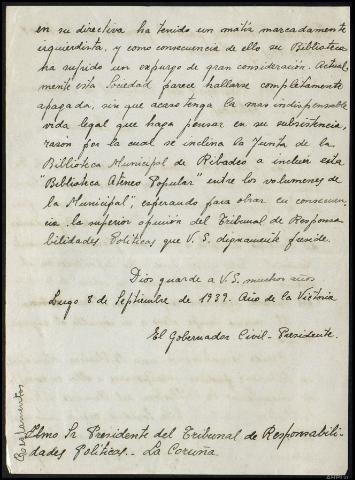 en su directiva ha tenido un matiz marcadamente
izquierdista, y como consecuencia de ello su Biblioteca
ha sufrido un expurgo de gran consideración. Actual-
mente esta Sociedad parece hallarse completamente
apagada, sin que acaso tenga la mas indispensable
vida legal que haga pensar en su subsistencia,
razón por la cual se inclina la Junta de la
Biblioteca Municipal de Ribadeo a incluir esta
"Biblioteca Ateneo Popular" entre los volumenes de
la Municipal", esperando para obrar en consecuen-
cia la superior opinión del Tribunal de Responsa-
bilidades Políticas que V.S. dignamente preside.
Dios guarde a V.S. muchos años
Lugo 8 de Septiembre de 1939. Año de la Victoria
El Gobernador Civil - Presidente.
Ilmo Sr Presidente del Tribunal de Responsabili-
dades Políticas. - La Coruña
Reglamentos